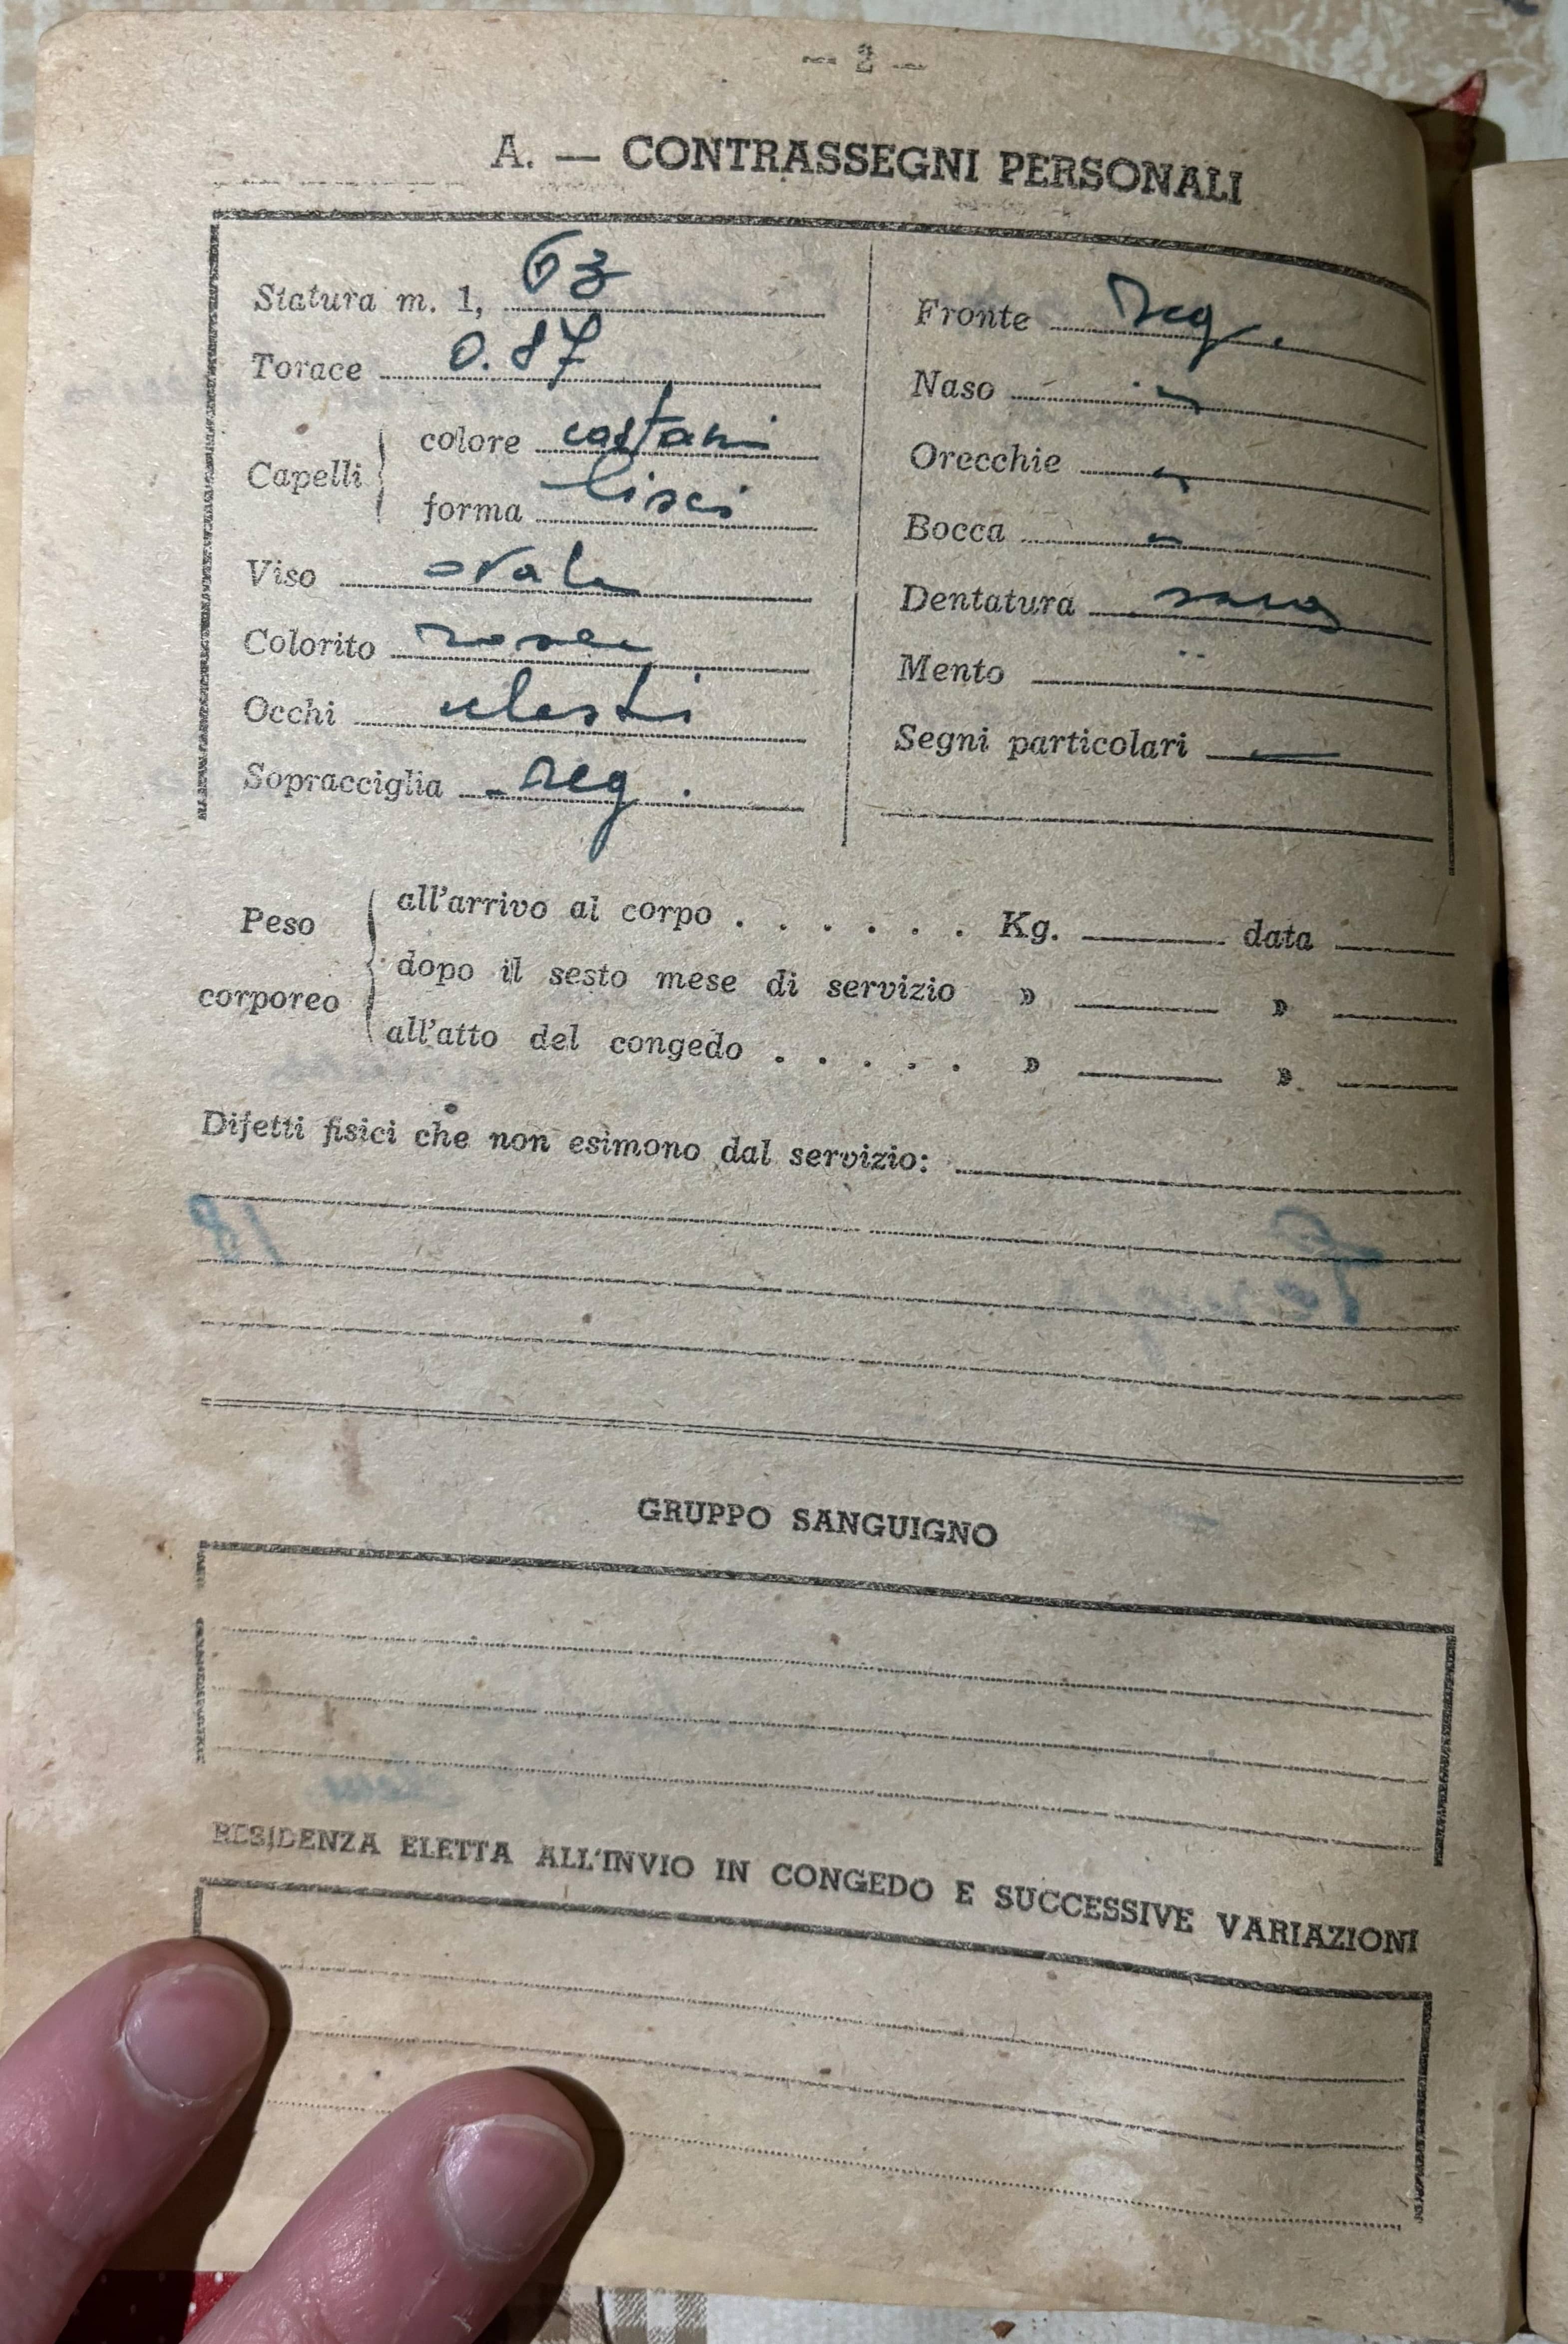 — 2 —
A. — CONTRASSEGNI PERSONALI
Statura m. 1, 63
Torace 0.87
Capelli
colore castani
forma lisci
Viso ovale
Colorito roseo
Occhi celesti
Sopracciglia reg.
Fronte reg.
Naso "
Orecchie "
Bocca "
Dentatura sana
Mento "
Segni particolari —
Peso corporeo
all'arrivo al corpo . . . . . . Kg. data
dopo il sesto mese di servizio » »
all'atto del congedo . . . . . » »
Difetti fisici che non esimono dal servizio:
GRUPPO SANGUIGNO
RESIDENZA ELETTA ALL'INVIO IN CONGEDO E SUCCESSIVE VARIAZIONI